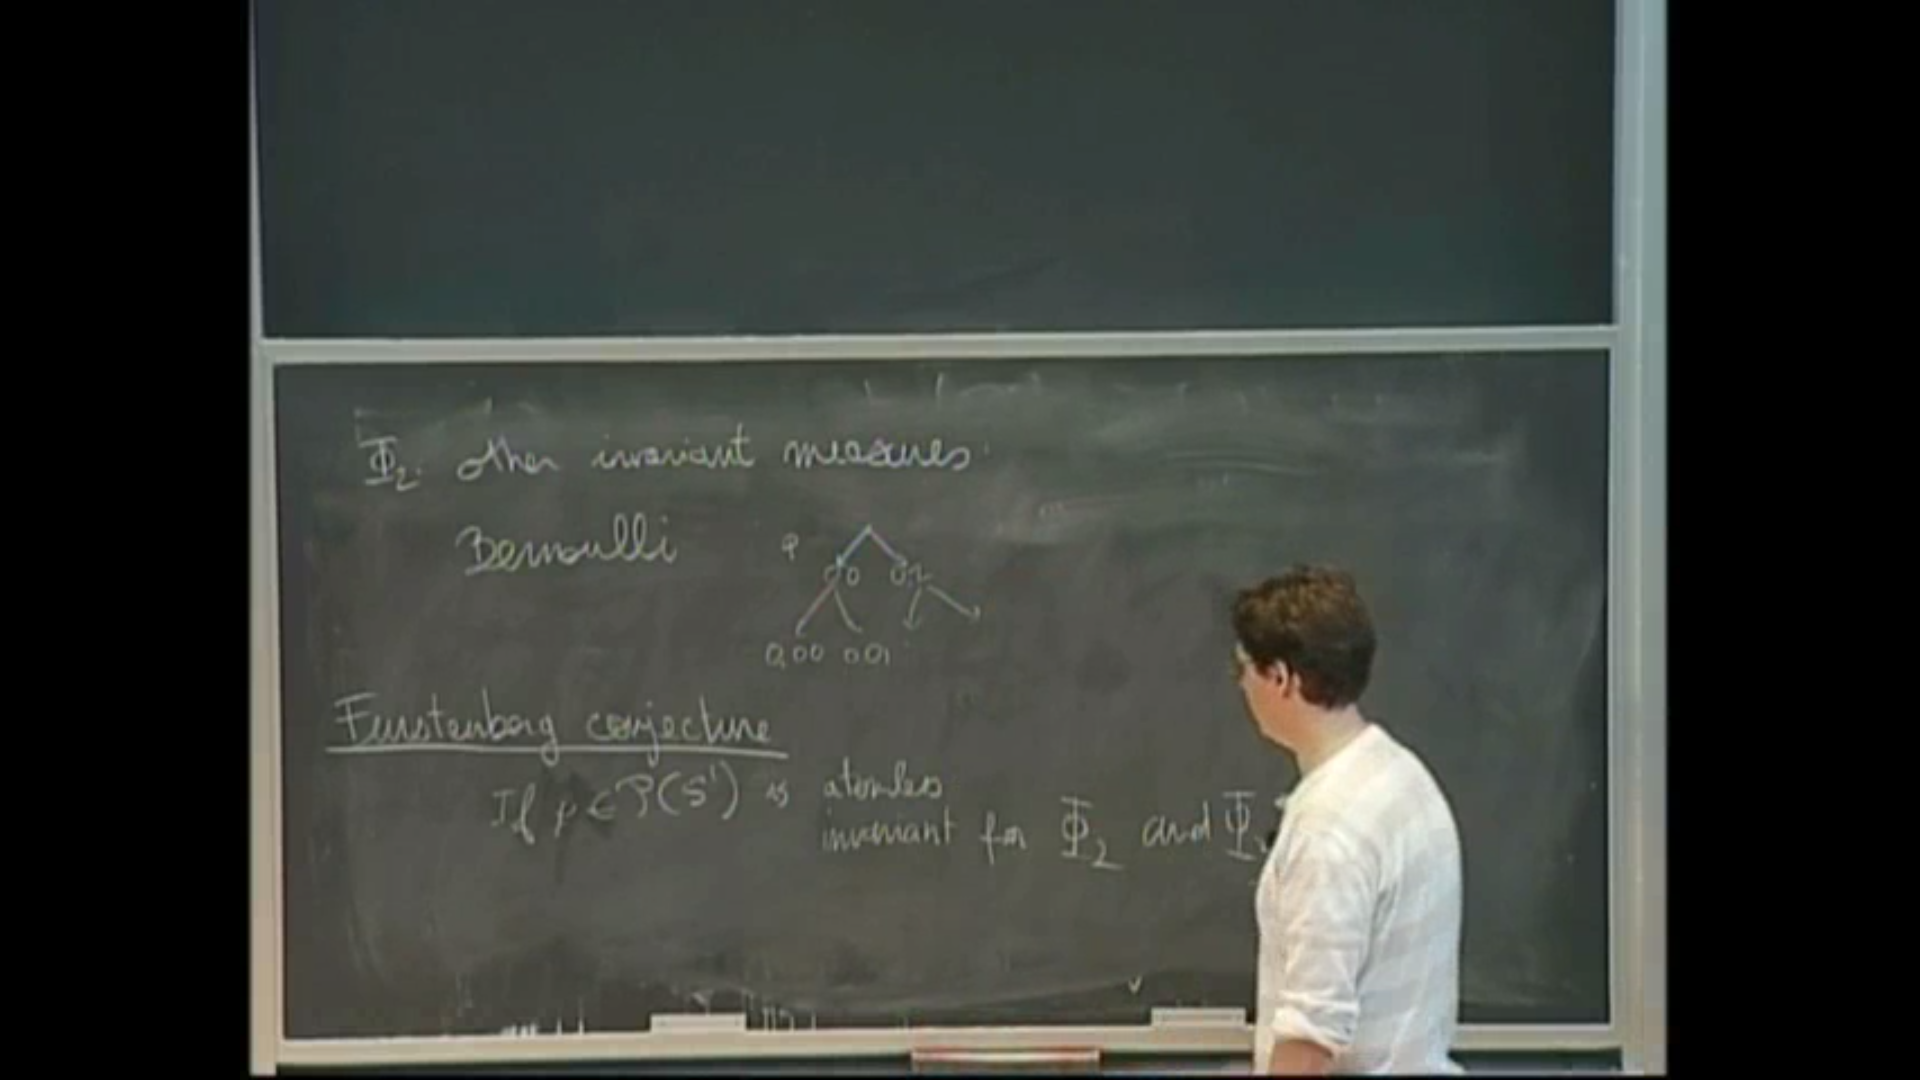 Φ₂. other invariant measures.
Bernoulli
0,0 0,1
0,00 0,01
Furstenberg conjecture
If μ ∈ P(S¹) is atomless
invariant for Φ₂ and Φ